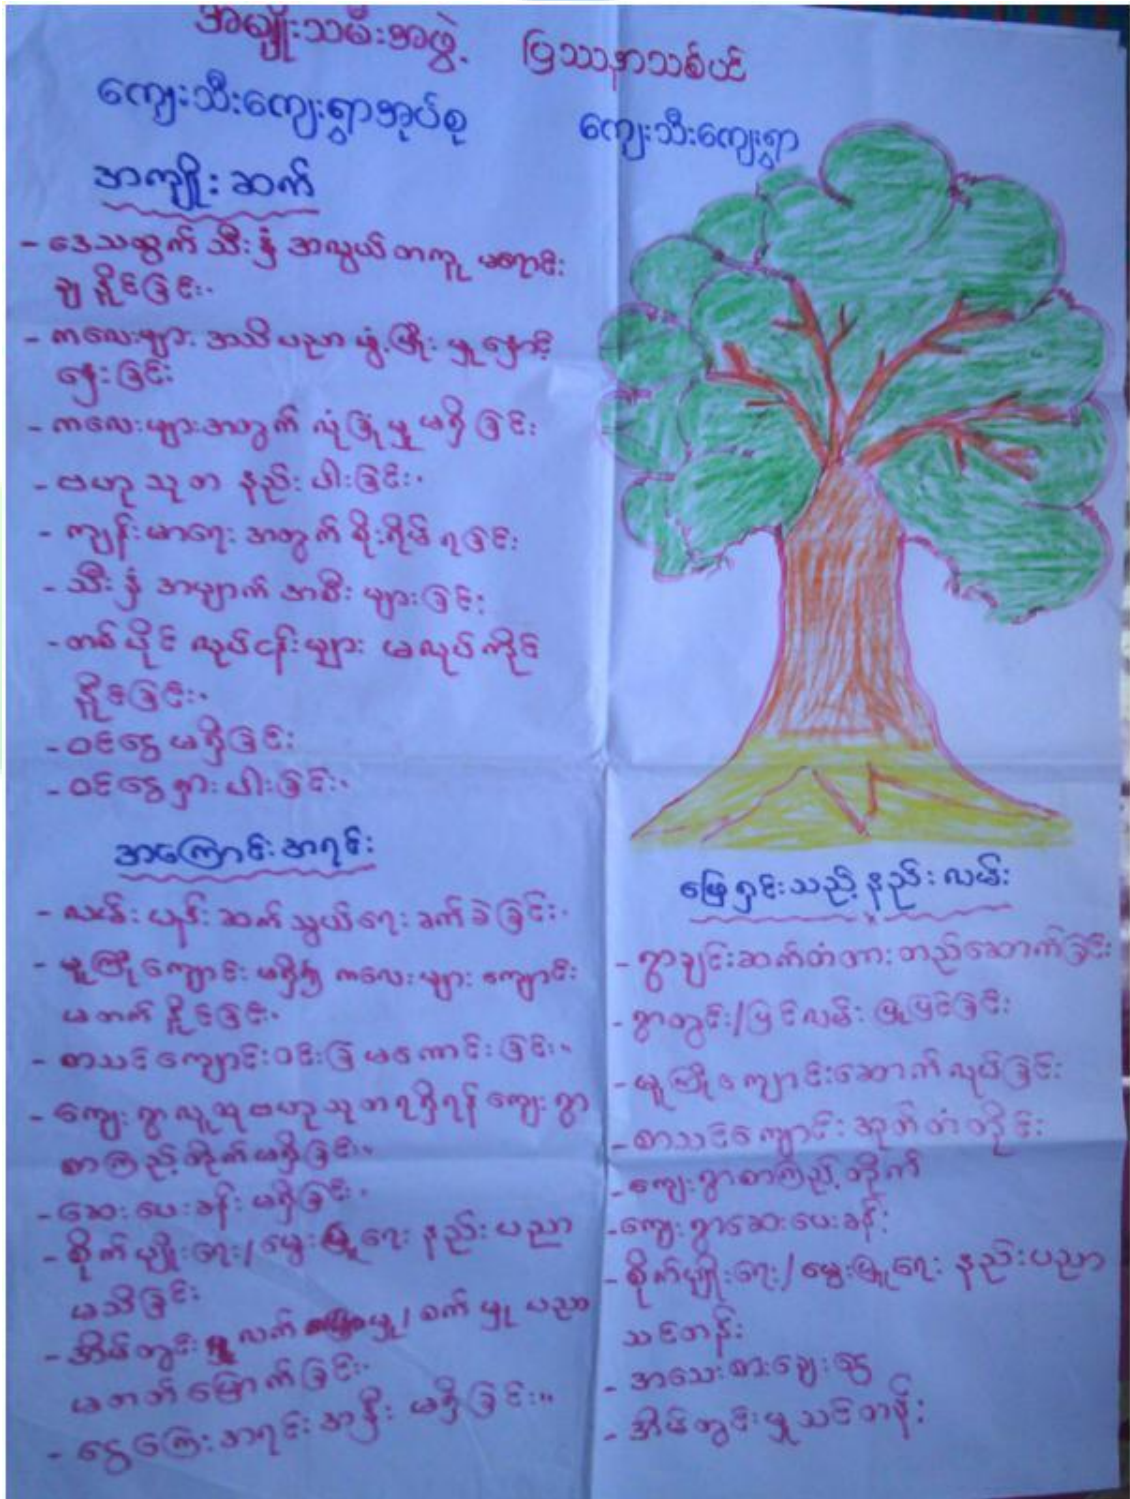 အမျိုးသမီးအဖွဲ့ ပြဿနာသစ်ပင်
ကျေးသီးကျေးရွာအုပ်စု ကျေးသီးကျေးရွာ
အကျိုးဆက်
- ဒေသထွက်သီးနှံ အလွယ်တကူ မရောင်း
ချနိုင်ခြင်း။
- ကလေးများ အသိပညာဖွံ့ဖြိုးမှုနှောင့်
နှေးခြင်း
- ကလေးများအတွက် လုံခြုံမှုမရှိခြင်း
- ဗဟုသုတ နည်းပါးခြင်း။
- ကျန်းမာရေးအတွက်စိုးရိမ်ရခြင်း
- သီးနှံအပျက်အစီးများခြင်း
- တစ်ပိုင်လုပ်ငန်းများ မလုပ်ကိုင်
နိုင်ခြင်း။
- ဝင်ငွေမရှိခြင်း
- ဝင်ငွေရှားပါးခြင်း။
အကြောင်းအရင်း
- လမ်းပန်းဆက်သွယ်ရေးခက်ခဲခြင်း။
- မူကြိုကျောင်းမရှိ၍ ကလေးများ ကျောင်း
မတက်နိုင်ခြင်း။
- စာသင်ကျောင်းဝင်းခြံမကောင်းခြင်း။
- ကျေးရွာလူထုဗဟုသုတရရှိရန် ကျေးရွာ
စာကြည့်တိုက်မရှိခြင်း။
- ဆေးပေးခန်းမရှိခြင်း။
- စိုက်ပျိုးရေး/မွေးမြူရေးနည်းပညာ
မသိခြင်း
- အိမ်တွင်းမှု လက်မှု/စက်မှုပညာ
မတတ်မြောက်ခြင်း။
- ငွေကြေးအရင်းအနှီး မရှိခြင်း။
ဖြေရှင်းသည့်နည်းလမ်း
- ရွာချင်းဆက်တံတားတည်ဆောက်ခြင်း
- ရွာတွင်း/ပြင်လမ်းပြုပြင်ခြင်း
- မူကြိုကျောင်းဆောက်လုပ်ခြင်း
- စာသင်ကျောင်းအုတ်တံတိုင်း
- ကျေးရွာစာကြည့်တိုက်
- ကျေးရွာဆေးပေးခန်း
- စိုက်ပျိုးရေး/မွေးမြူရေး နည်းပညာ
သင်တန်း
- အသေးစားချေးငွေ
- အိမ်တွင်းမှုသင်တန်း